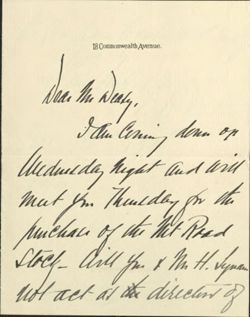 18 Commonwealth Avenue.
Dear Mr
I am coming down on
Wednesday night and will
meet you Thursday for the
purchase of the Mt Road
Stock - Will you & Mr H. Lyman
not act as the directors of